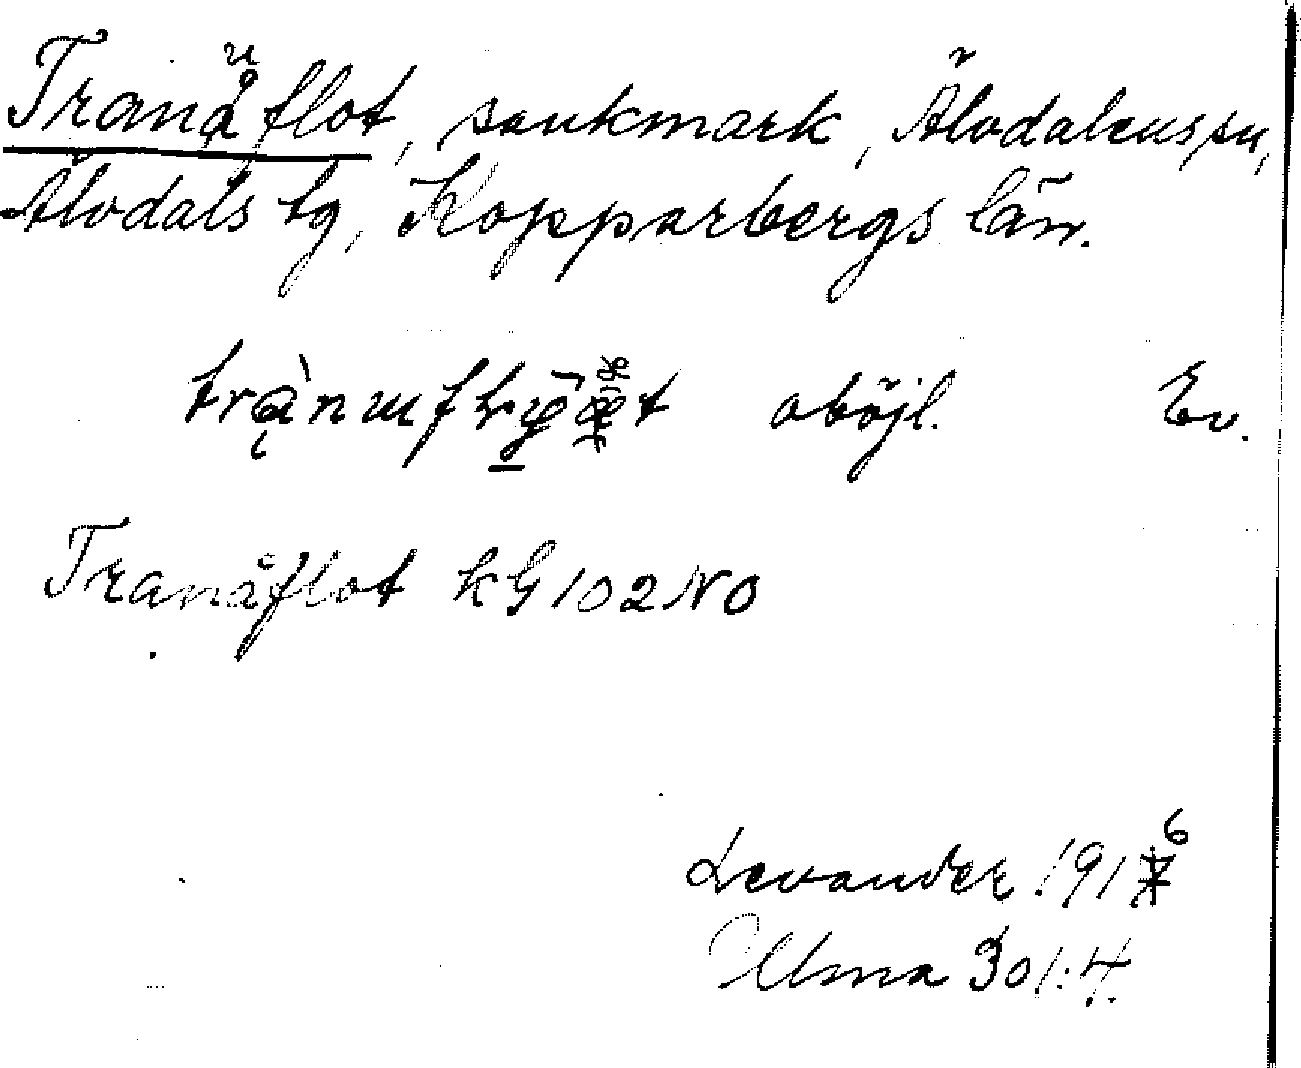 Tranåflot, sankmark, Älvdalens sn,
Älvdals tg, Kopparbergs län.
oböjl. Ev.
Tranåflot kG 102 NO
Levander 1916
Ulma 301:4.